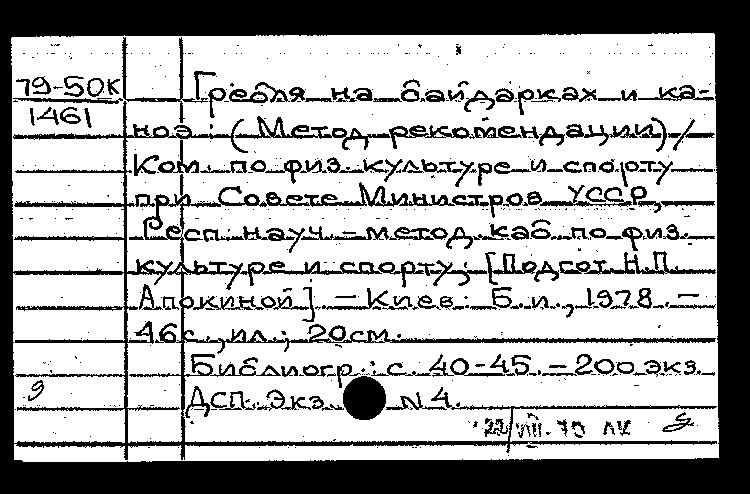 79-50К
1461
Гребля на байдарках и ка-
ноэ: (Метод рекомендации) /
Ком. по физ. культуре и спорту
при Совете Министров УССР,
Респ. науч.-метод. каб. по физ.
культуре и спорту; [Подгот. Н.П.
Апокиной] – Киев: Б. и., 1978. –
46с., ил.; 20см.
Библиогр.: с. 40-45. – 200 экз.
ДСП. Экз. N 4.
9
22/VIII.79